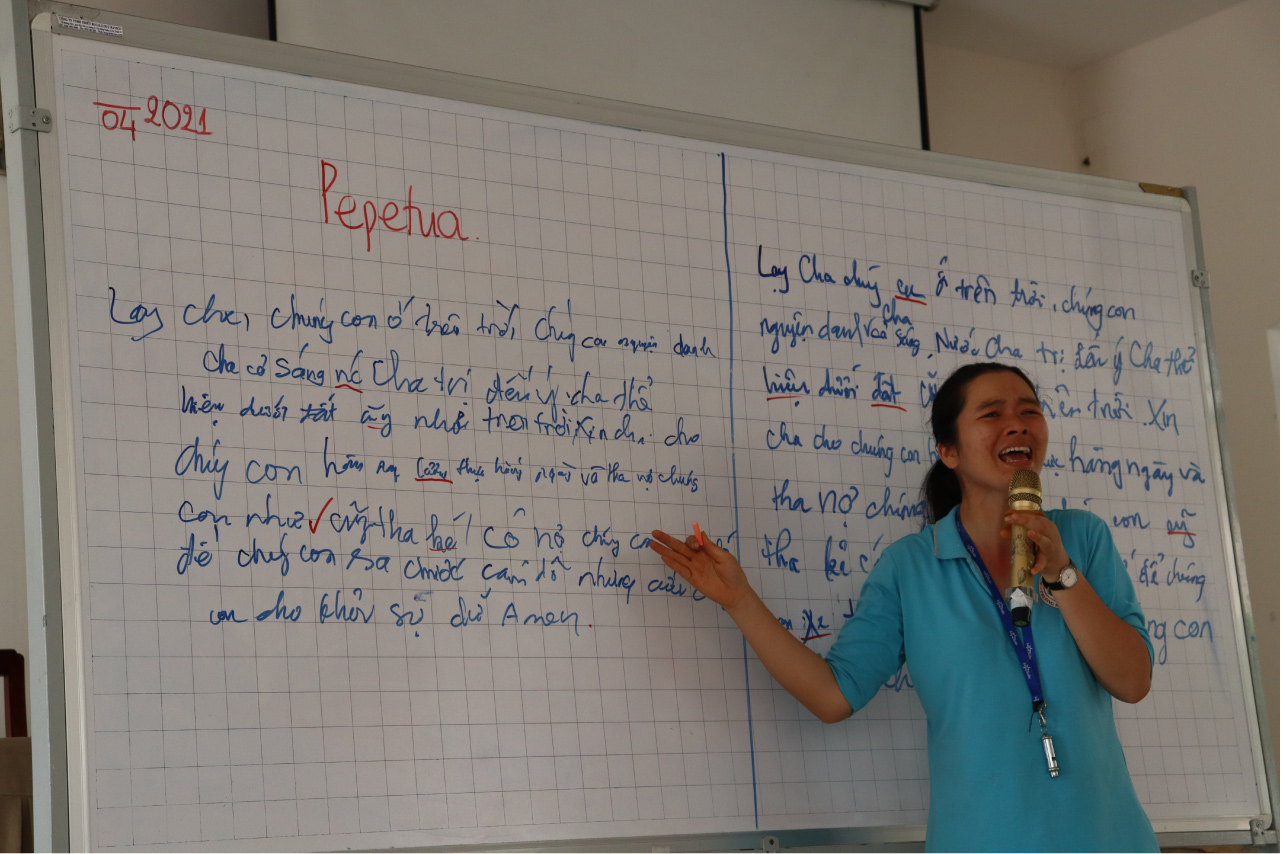 04 2021
Pepetua.
Lạy cha, chúng con ở trên trời, chúng con nguyện danh
cha cả sáng nć Cha trị đến ý cha thể
hiện dưới đất cũg như trên trời xin cha cho
chúg con hôm nay lươg thực hằng ngày và tha nợ chúng
con như cũg tha kẻ có nợ chúng con
để chúg con sa chước cám dỗ nhưng cứu
con cho khỏi sự dữ Amen.
Lạy Cha chúg cn ở trên trời, chúng con
cha
nguyện danh cả sáng, Nước Cha trị đến ý Cha thể
hiện dưới đất trên trời. Xin
cha cho chúng con hằng ngày và
tha nợ chúng con cũg
tha kẻ để chúng
xa con